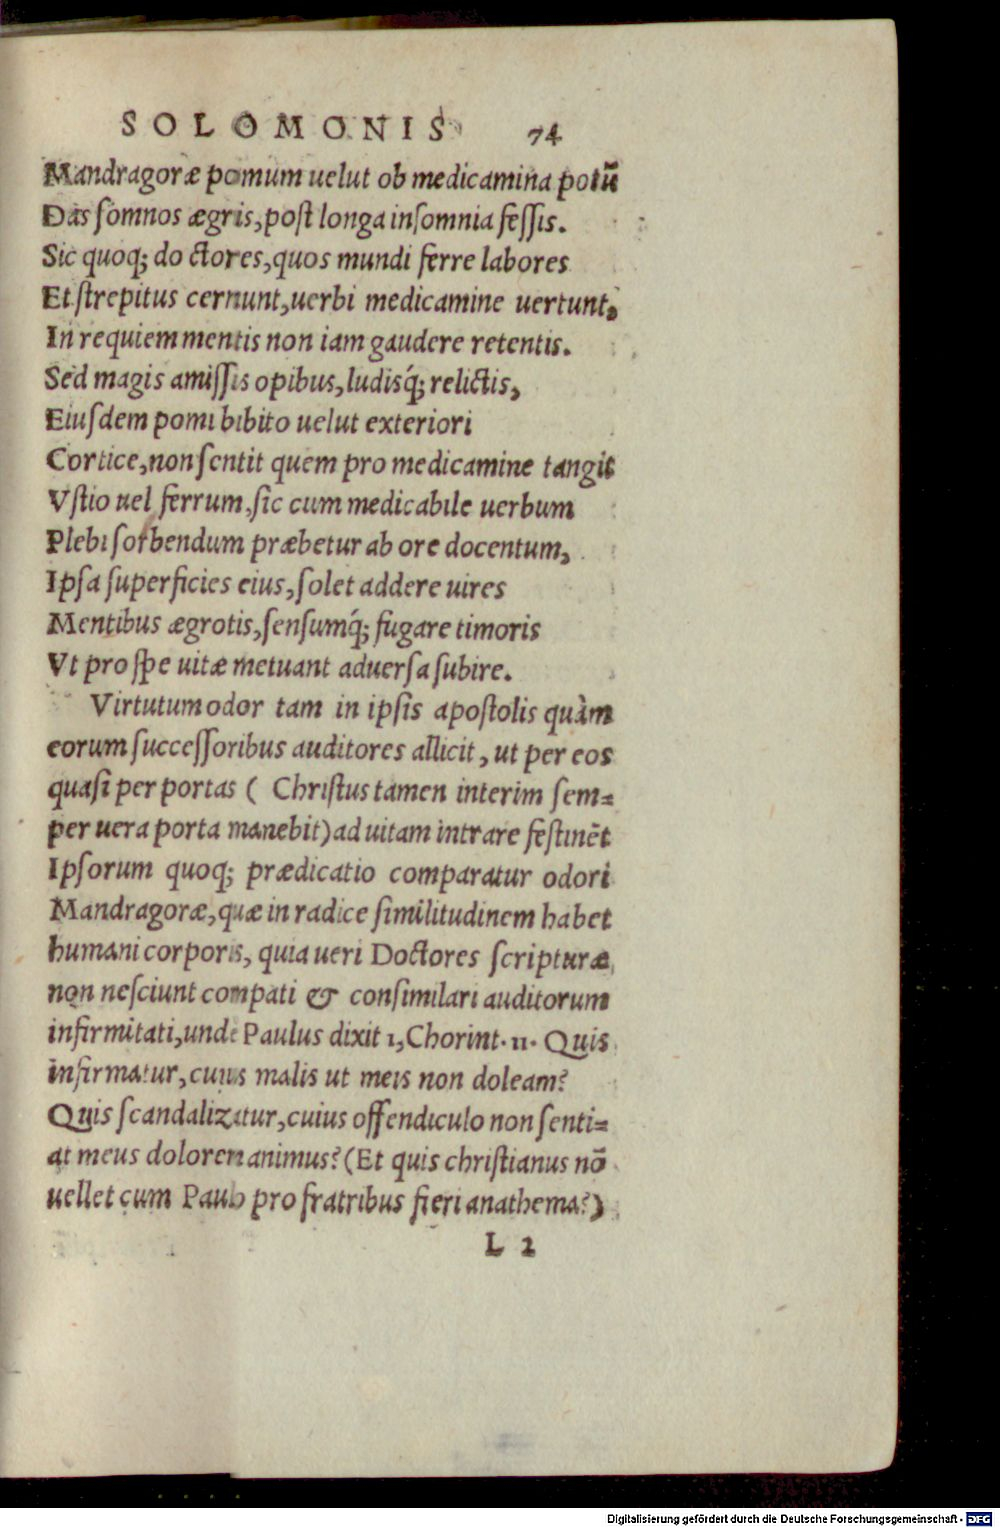 SOLOMONIS 74
Mandragoræ pomum uelut ob medicamina potũ
Das somnos ægris, post longa insomnia fessis.
Sic quoq; doctores, quos mundi ferre labores
Et strepitus cernunt, uerbi medicamine uertunt,
In requiem mentis non iam gaudere retentis.
Sed magis amissis opibus, ludisq́; relictis,
Eiusdem pomi bibito uelut exteriori
Cortice, non sentit quem pro medicamine tangit
Vstio uel ferrum, sic cum medicabile uerbum
Plebi sorbendum præbetur ab ore docentum,
Ipsa superficies eius, solet addere uires
Mentibus ægrotis, sensumq́; fugare timoris
Vt pro spe uitæ metuant aduersa subire.
Virtutum odor tam in ipsis apostolis quàm
eorum successoribus auditores allicit, ut per eos
quasi per portas ( Christus tamen interim sem=
per uera porta manebit) ad uitam intrare festinẽt
Ipsorum quoq; prædicatio comparatur odori
Mandragoræ, quæ in radice similitudinem habet
humani corporis, quia ueri Doctores scripturæ
non nesciunt compati & consimilari auditorum
infirmitati, unde Paulus dixit 1, Chorint. 11. Quis
infirmatur, cuius malis ut meis non doleam?
Quis scandalizatur, cuius offendiculo non senti=
at meus dolorem animus? (Et quis christianus nõ
uellet cum Paulo pro fratribus fieri anathema?)
L 2
Digitalisierung gefördert durch die Deutsche Forschungsgemeinschaft - DFG